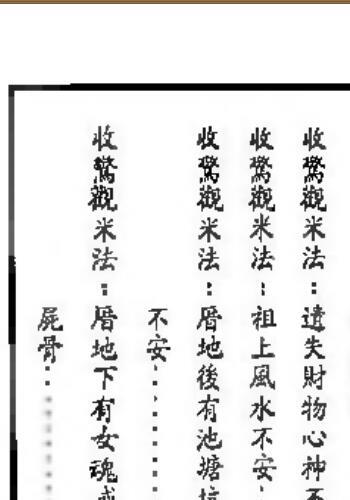 收驚觀米法：遺失財物心神不
收驚觀米法：祖上風水不安、
收驚觀米法：厝地後有池塘坑
不安……
收驚觀米法：厝地下有女魂或
屍骨……